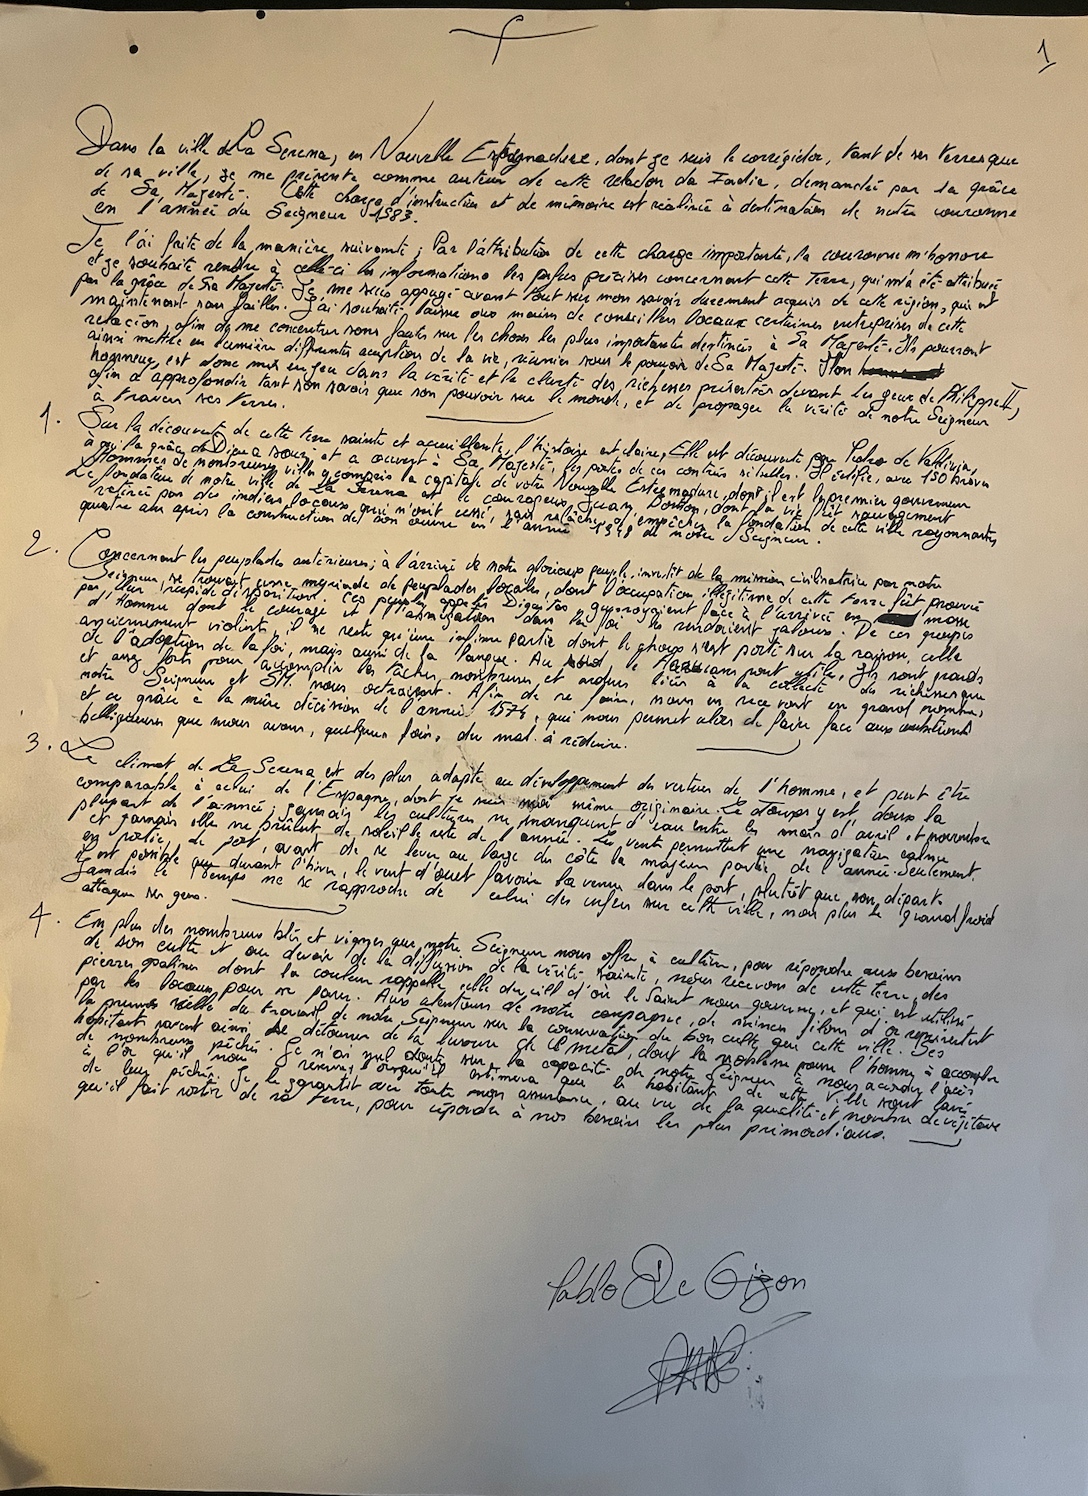 1
Dans la ville de La Serena, en Nouvelle Estremadure, dont je suis le corrégidor, tant de ses terres que
de sa ville, je me présente comme auteur de cette relacion da India, demandé par la grâce
de Sa Majesté. Cette charge d'instruction et de mémoire est réalisée à destination de notre couronne
en l'année du Seigneur 1583.
Je l'ai faite de la manière suivante ; Par l'attribution de cette charge importante, la couronne m'honore
et je souhaite rendre à celle-ci les informations les plus précises concernant cette Terre, qui m'a été attribuée
par la grâce de Sa Majesté. Je me suis appuyé avant tout sur mon savoir durement acquis de cette région, qui est
maintenant sans failles. J'ai souhaité laisser aux mains de conseillers locaux certaines entreprises de cette
relacion, afin de me concentrer sans fautes sur les choses les plus importantes destinées à Sa Majesté. Ils pourront
ainsi mettre en lumière différentes de la vie, réunies sous le pouvoir de Sa Majesté. Mon
honneur, est donc mis en jeu dans la vérité et la clarté des richesses présentées devant les yeux de Philippe II,
afin d'approfondir tant son savoir que son pouvoir sur le monde, et de propager la vérité de notre Seigneur
à travers ses terres.
1. Sur la découverte de cette terre sainte et accueillante, l'histoire est claire, Elle est découverte par Pedro de Valdivia,
à qui la grâce de Dieu a souri et a ouvert à Sa Majesté, les portes de ces contrées rituelles. Il édifie, avec 150 braves
Hommes de nombreuses villes y compris la capitale de votre Nouvelle Estremadure, dont il est le premier gouverneur
Le fondateur de notre ville de La Serena est le courageux Juan Bohon, dont la vie fût sauvagement
retirée par des indiens locaux, qui n'ont cessé, sans relâche, d'empêcher la fondation de cette ville rayonnante,
quatre ans après la construction de son œuvre en l'année 1548 de notre Seigneur.
2. Concernant les peuplades antérieures ; à l'arrivée de notre glorieux peuple, investit de la mission civilisatrice par notre
Seigneur, se trouvait une myriade de peuplades locales, dont l'occupation illégitime de cette terre fût prouvée
par leur rapide disparition. Ces peuples appelés Diguitas, face à l'arrivée en masse
d'Homme dont le courage et l'assignation dans la foi les rendaient jaloux. De ces groupes
anciennement violents, il ne reste qu'une infime partie dont le choix s'est porté sur la raison, celle
de l'adoption de la foi, mais aussi de la langue. Au le sont utiles, Ils sont grands
et assez forts pour accomplir les tâches nombreuses et ardues liées à la collecte des richesses que
notre Seigneur et SM. nous octroyent. Afin de ce faire, nous en recevont en grand nombre,
et ce grâce à la mûre décision de l'année 1574, qui nous permet alors de faire face aux
belliqueuses que nous avons, quelques fois, du mal à réduire.
3. Le climat de La Serena, est des plus adapté au développement du vertus de l'homme, et peut être
comparable à celui de l'Espagne, dont je suis moi même originaire. Le temps y est doux la
plupart de l'année ; jamais les cultures ne manquent d'eau entre les mois d'avril et novembre
et jamais elle ne brûlent de soleil le reste de l'année. Les vents permettent une navigation calme
en sortie, de port, avant de se lever au large du côté la majeure partie de l'année. Seulement.
Il est possible que durant l'hiver, le vent d'ouest favorise la venue dans le port, plutôt que son départ.
Jamais le temps ne se rapproche de celui des enfers sur cette ville, non plus le grand froid
attaque ses gens.
4. En plus des nombreux blés et vignes que notre Seigneur nous offre à cultiver, pour répondre aux besoins
de son culte et au devoir de la diffusion de la vérité sainte, nous recevons de cette terre, des
pierres opalines dont la couleur rappelle celle du ciel d'où le Saint nous gouverne, et qui est utilisé
par les locaux, pour se parer. Aux alentours de notre compagnie, de minces filons d'or
la preuve réelle du travail de notre Seigneur sur la conservation du bon culte que cette ville. Ses
habitant savent ainsi se détourner de la luxure de ce métal, dont la pousse l'homme à accomplir
de nombreux péchés. Je n'ai nul doute sur la capacité de notre Seigneur à nous accorder l'accès
à l'or qu'il nous réserve, lorsqu'il estimera que les habitants de cette ville sont lavé
de leur péchés. Je le garantit avec toute mon assurance, au vu de la qualité et nombre de végétaux
qu'il fait sortir de sa terre, pour répondre à nos besoins les plus primordiaux.
Pablo De Gijon